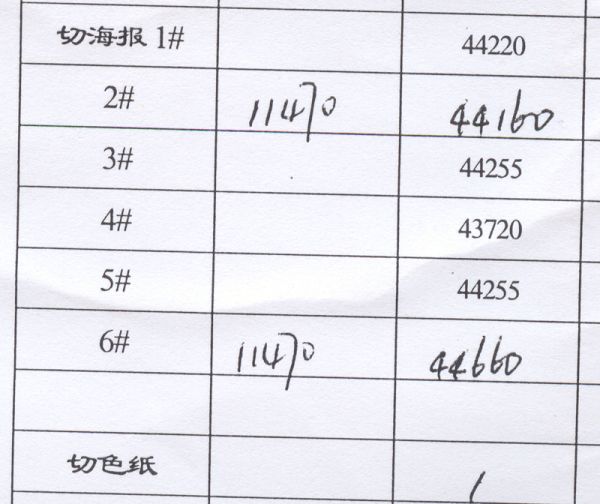 切海报 1# 44220
2# 11470 44160
3# 44255
4# 43720
5# 44255
6# 11470 44660
切色纸